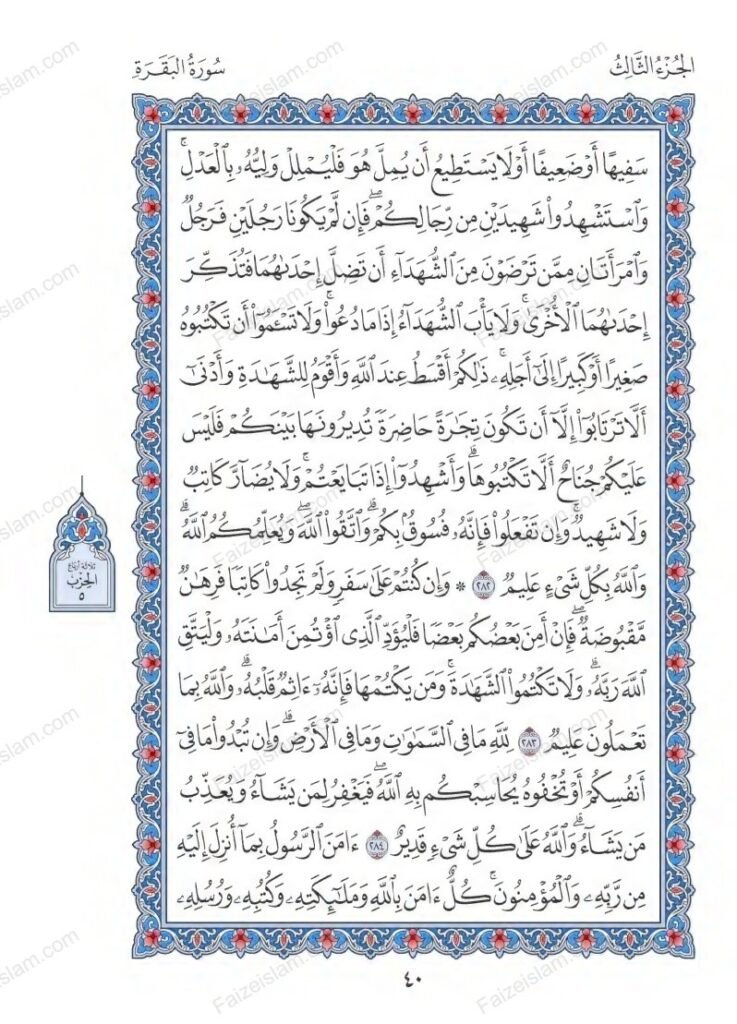 الجُزْءُ الثَّالِثُ
سُورَةُ البَقَرَةِ
سَفِيهًا أَوْ ضَعِيفًا أَوْ لَا يَسْتَطِيعُ أَن يُمِلَّ هُوَ فَلْيُمْلِلْ وَلِيُّهُۥ بِٱلْعَدْلِۚ
وَٱسْتَشْهِدُوا۟ شَهِيدَيْنِ مِن رِّجَالِكُمْۖ فَإِن لَّمْ يَكُونَا رَجُلَيْنِ فَرَجُلٌ
وَٱمْرَأَتَانِ مِمَّن تَرْضَوْنَ مِنَ ٱلشُّهَدَآءِ أَن تَضِلَّ إِحْدَىٰهُمَا فَتُذَكِّرَ
إِحْدَىٰهُمَا ٱلْأُخْرَىٰۚ وَلَا يَأْبَ ٱلشُّهَدَآءُ إِذَا مَا دُعُوا۟ۚ وَلَا تَسْـَٔمُوٓا۟ أَن تَكْتُبُوهُ
صَغِيرًا أَوْ كَبِيرًا إِلَىٰٓ أَجَلِهِۦۚ ذَٰلِكُمْ أَقْسَطُ عِندَ ٱللَّهِ وَأَقْوَمُ لِلشَّهَٰدَةِ وَأَدْنَىٰٓ
أَلَّا تَرْتَابُوٓا۟ إِلَّآ أَن تَكُونَ تِجَٰرَةً حَاضِرَةً تُدِيرُونَهَا بَيْنَكُمْ فَلَيْسَ
عَلَيْكُمْ جُنَاحٌ أَلَّا تَكْتُبُوهَاۗ وَأَشْهِدُوٓا۟ إِذَا تَبَايَعْتُمْۚ وَلَا يُضَآرَّ كَاتِبٌ
وَلَا شَهِيدٌۚ وَإِن تَفْعَلُوا۟ فَإِنَّهُۥ فُسُوقٌۢ بِكُمْۗ وَٱتَّقُوا۟ ٱللَّهَۖ وَيُعَلِّمُكُمُ ٱللَّهُۗ
وَٱللَّهُ بِكُلِّ شَىْءٍ عَلِيمٌ ٢٨٢ ۞ وَإِن كُنتُمْ عَلَىٰ سَفَرٍ وَلَمْ تَجِدُوا۟ كَاتِبًا فَرِهَٰنٌ
مَّقْبُوضَةٌۖ فَإِنْ أَمِنَ بَعْضُكُم بَعْضًا فَلْيُؤَدِّ ٱلَّذِى ٱؤْتُمِنَ أَمَٰنَتَهُۥ وَلْيَتَّقِ
ٱللَّهَ رَبَّهُۥۗ وَلَا تَكْتُمُوا۟ ٱلشَّهَٰدَةَۚ وَمَن يَكْتُمْهَا فَإِنَّهُۥٓ ءَاثِمٌ قَلْبُهُۥۗ وَٱللَّهُ بِمَا
تَعْمَلُونَ عَلِيمٌ ٢٨٣ لِّلَّهِ مَا فِى ٱلسَّمَٰوَٰتِ وَمَا فِى ٱلْأَرْضِۗ وَإِن تُبْدُوا۟ مَا فِىٓ
أَنفُسِكُمْ أَوْ تُخْفُوهُ يُحَاسِبْكُم بِهِ ٱللَّهُۖ فَيَغْفِرُ لِمَن يَشَآءُ وَيُعَذِّبُ
مَن يَشَآءُۗ وَٱللَّهُ عَلَىٰ كُلِّ شَىْءٍ قَدِيرٌ ٢٨٤ ءَامَنَ ٱلرَّسُولُ بِمَآ أُنزِلَ إِلَيْهِ
مِن رَّبِّهِۦ وَٱلْمُؤْمِنُونَۚ كُلٌّ ءَامَنَ بِٱللَّهِ وَمَلَٰٓئِكَتِهِۦ وَكُتُبِهِۦ وَرُسُلِهِۦ
ثلاثة أرباع
الحزب
٥
٤٠
Faizeislam.com